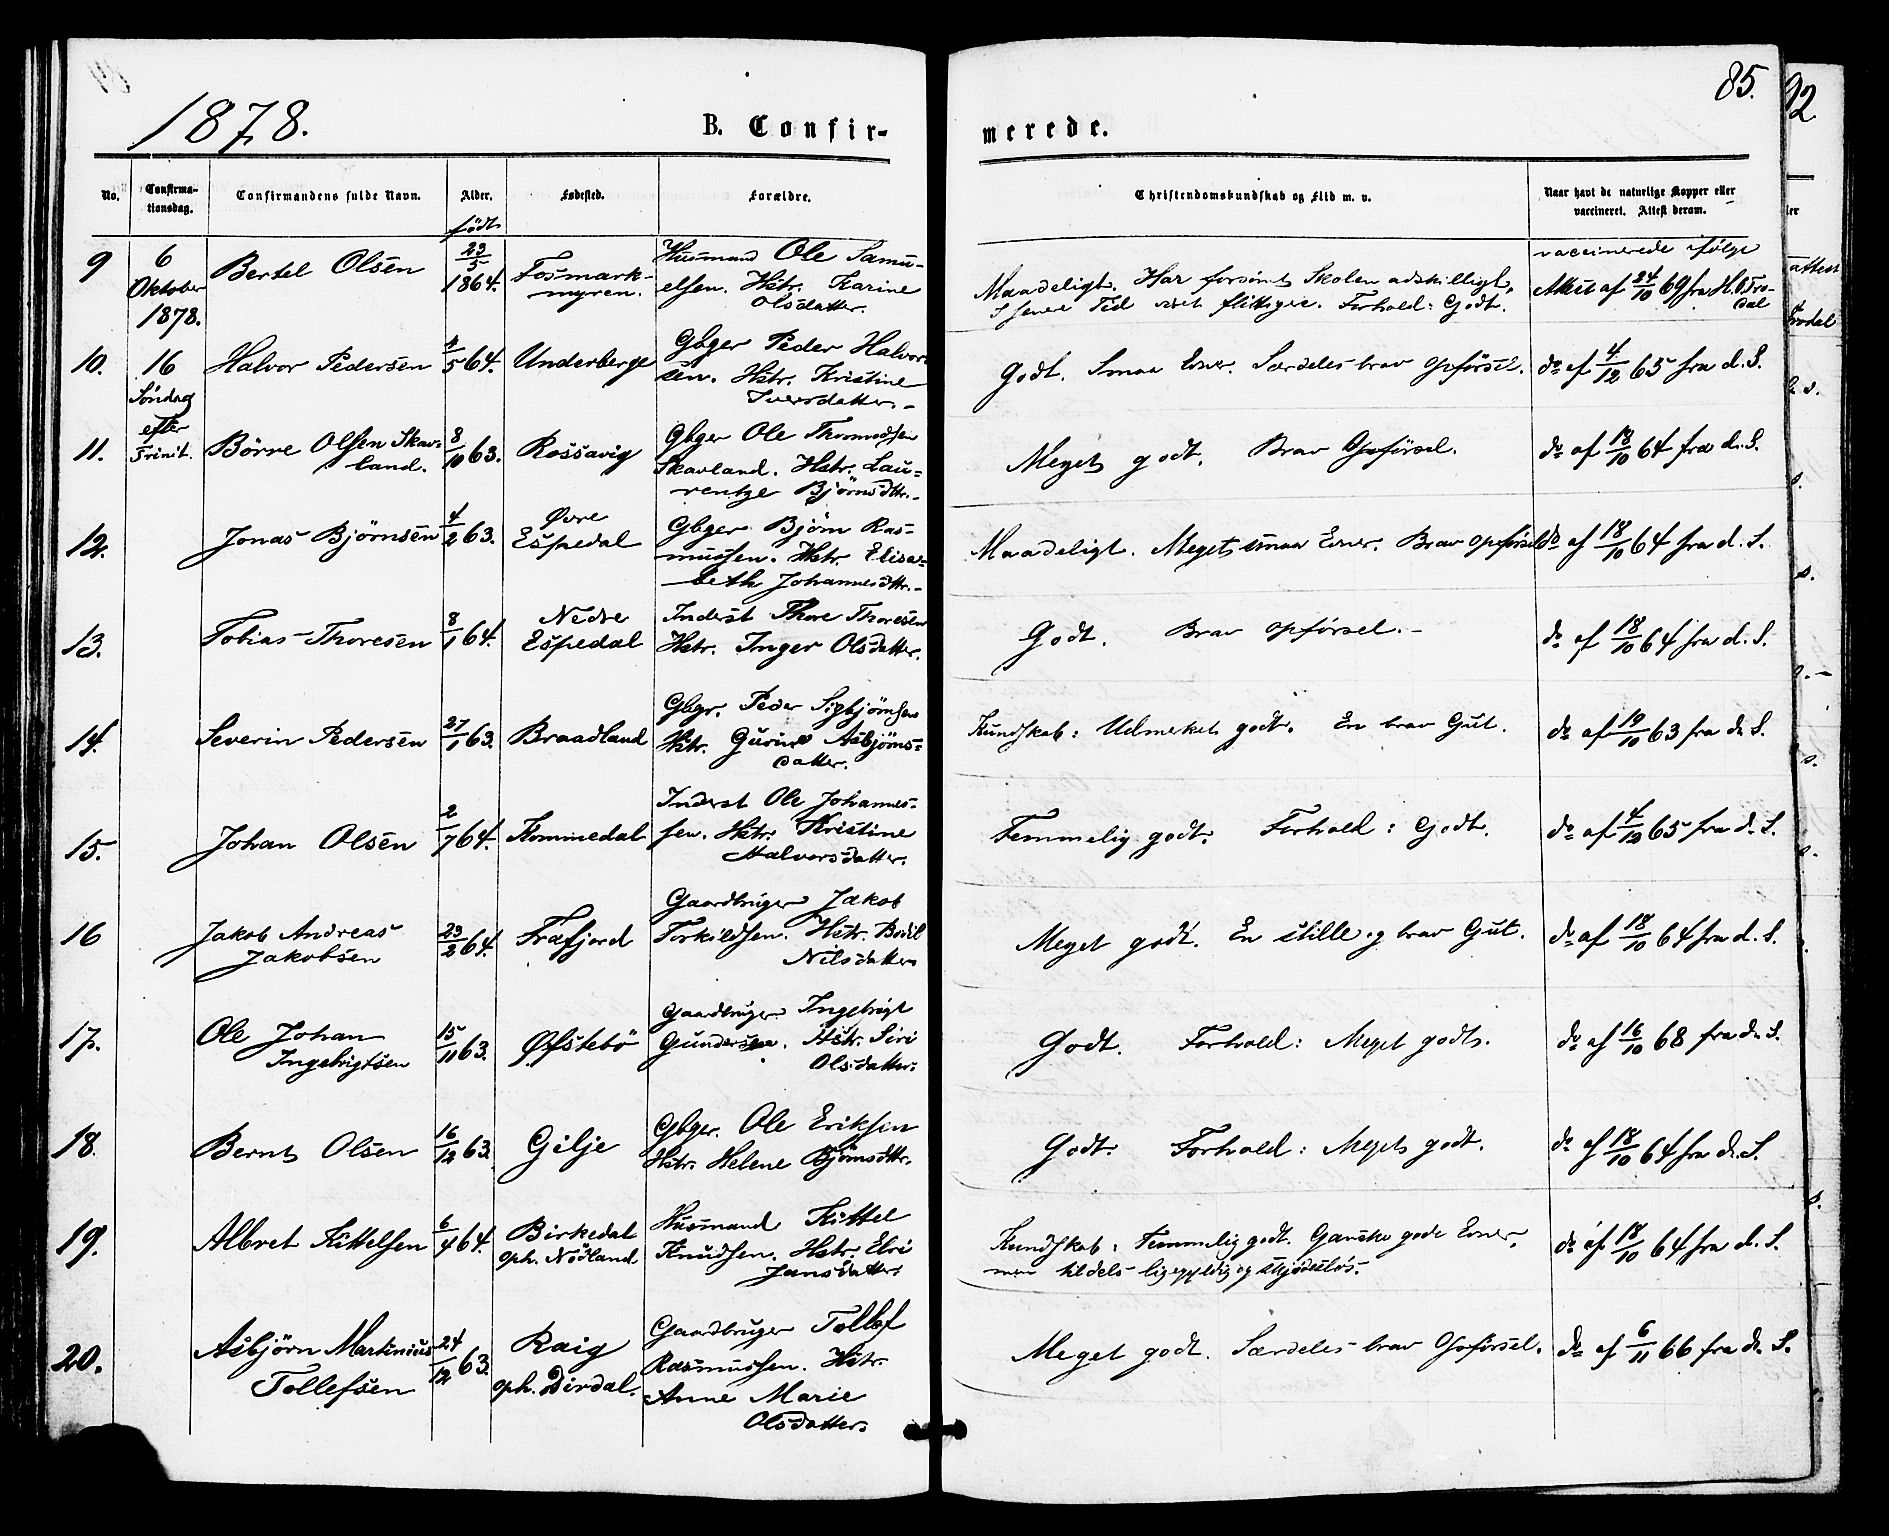 1878.
B. Confir-
merede.
85.
92
No.
Confirma-
tionsdag.
Confirmandens fulde Navn.
Alder.
født
Fødested.
Forældre.
Christendomskundskab og Flid m. v.
Naar havt de naturlige Kopper eller
vaccineret. Attest derom.
9
6
Oktober
1878.
Bertel Olsen
23/5
1864.
Fosmark-
myren.
Husmand Ole Samu-
elsen. Hstr. Karine
Olsdatter.
Maadeligt. Har forsømt Skolen adskilligt,
i senere Tid været flittigere. Forhold: Godt.
vaccinerede ifølge
Attest af 24/10 69 fra H. Fro-
dal
10.
16
Søndag
efter
Trinit.
Halvor Pedersen
4/5 64.
Underberge
Gbger Peder Halvor-
sen. Hstr. Kristine
Iversdatter.-
Godt. Smaa Evner. Særdeles brav Opførsel.
do af 4/12 65 fra d. S.
11.
Børre Olsen Skav-
land.
8/10 63.
Rossavig
Gbger Ole Thormodsen
Skavland. Hstr. Lau-
rentze Bjørnsdttr.-
Meget godt. Brav Opførsel.
do af 18/10 64 fra d. S.
12.
Jonas Bjørnsen
4/2 63.
Øvre
Espedal
Gbger Bjørn Ras-
mussen. Hstr. Elisa-
beth Johannesdttr.-
Maadeligt. Meget smaa Evner. Brav Opførsel
do af 18/10 64 fra d. S.
13.
Tobias Thoresen
8/1 64.
Nedre
Espedal
Inderst Thore Thoresen
Hstr. Inger Olsdatter.
Godt. Brav Opførsel.-
do af 18/10 64 fra d. S.
14.
Severin Pedersen
27/1 63.
Braadland
Gbgr. Peder Sigbjørnsen
Hstr. Gurine Asbjørns-
datter.
Kundskab: Udmerket godt. En brav Gut.
do af 19/10 63 fra d. S.
15.
Johan Olsen
2/7 64.
Kommedal
Inderst Ole Johannes-
sen. Hstr. Kristine
Halvorsdatter.
Temmelig godt. Forhold: Godt.
do af 4/12 65 fra d. S.
16
Jakob Andreas
Jakobsen
23/2 64.
Frafjord
Gaardbruger Jakob
Torkildsen. Hstr. Bodil
Nilsdatter
Meget godt. En stille og brav Gut.
do af 18/10 64 fra d. S.
17.
Ole Johan
Ingebrigtsen
15/11 63.
Øfstebø
Gaardbruger Ingebrigt
Gundersen. Hstr. Siri
Olsdatter.
Godt. Forhold: Meget godt.
do af 16/10 68 fra d. S.
18.
Bernt Olsen
16/12 63.
Gilje
Gbger. Ole Eriksen
Hstr. Helene Bjørnsdttr.
Godt. Forhold: Meget godt.
do af 18/10 64 fra d. S.
19.
Albret Kittelsen
6/4 64.
Birkedal
oph. Nødland
Husmand Kittel
Knudsen. Hstr. Elri
Jansdatter.
Kundskab: Temmelig godt. Ganske gode Evner,
men tildels ligegyldig og skjødesløs.
do af 18/10 64 fra d. S.
20.
Asbjørn Martinius
Tollefsen
24/12 63.
Raig
oph. Dirdal.
Gaardbruger Tollef
Rasmussen. Hstr.
Anne Marie
Olsdatter.
Meget godt. Særdeles brav Opførsel.
do af 6/11 66 fra d. S.